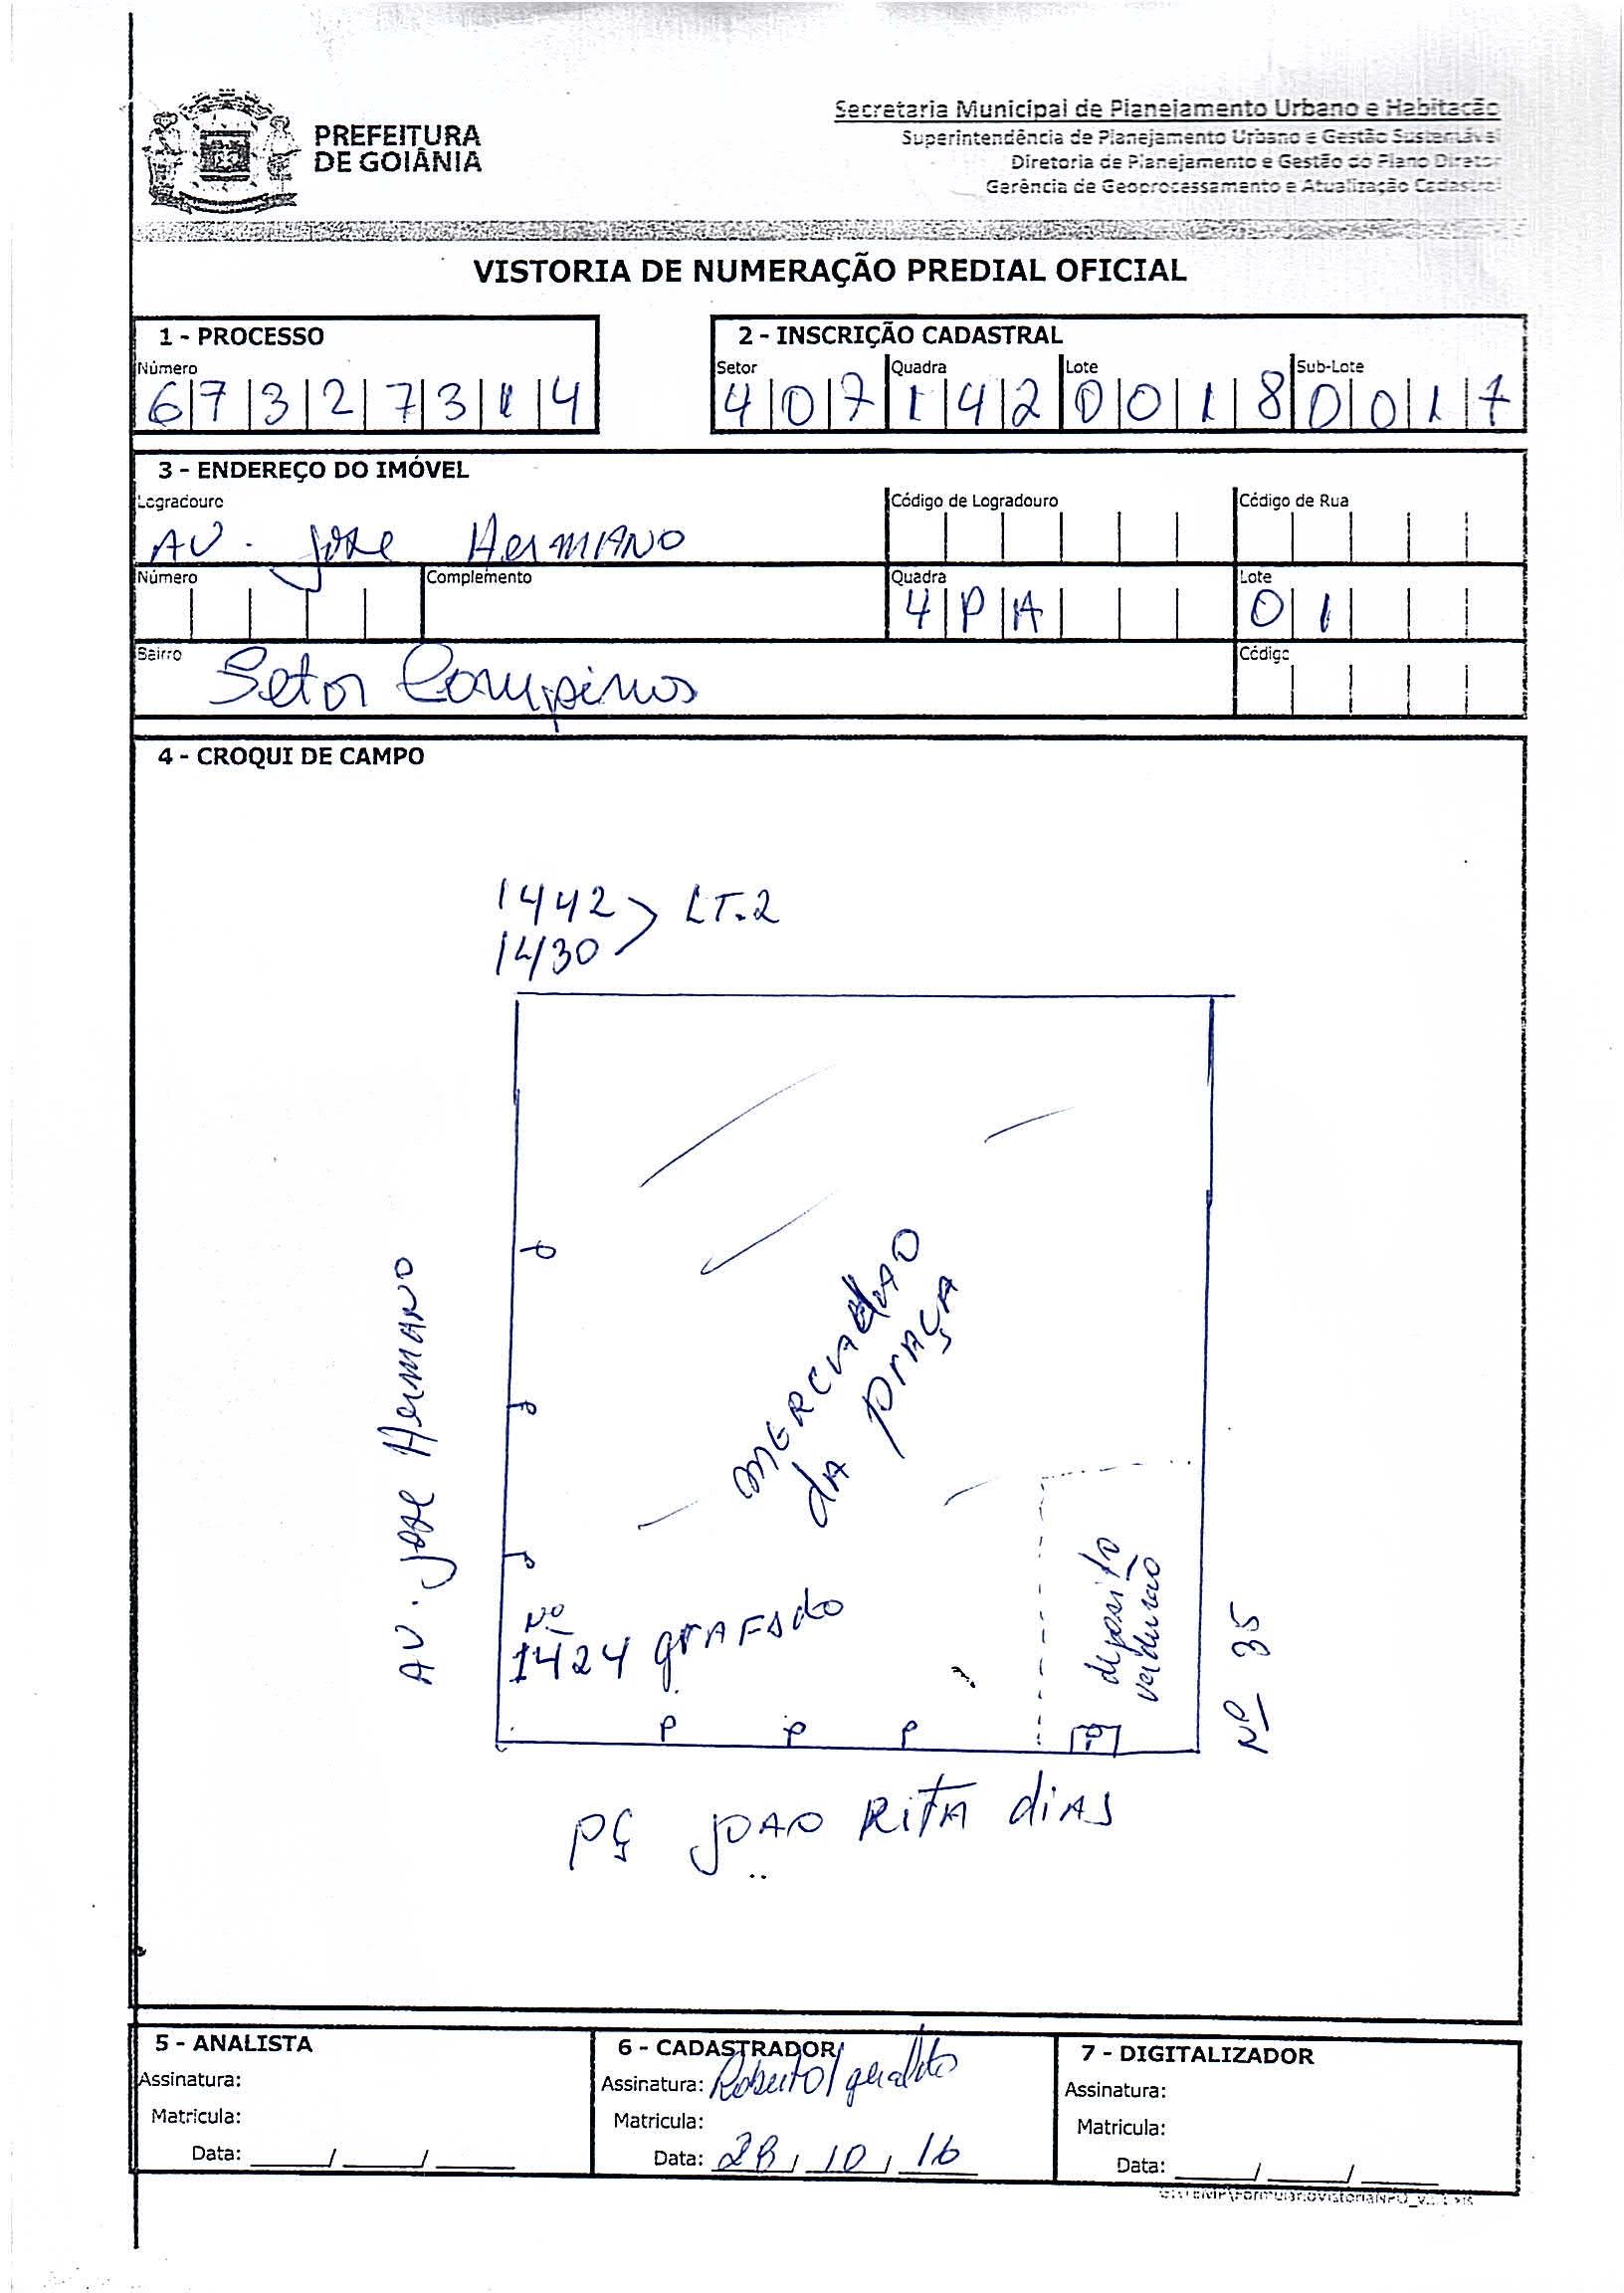 PREFEITURA
DE GOIÂNIA
Secretaria Municipal de Planejamento Urbano e Habitação
Superintendência de Planejamento Urbano e Gestão Sustentável
Diretoria de Planejamento e Gestão do Plano Diretor
Gerência de Geoprocessamento e Atualização Cadastral
VISTORIA DE NUMERAÇÃO PREDIAL OFICIAL
1 - PROCESSO
Número
6 7 3 2 7 3 1 4
2 - INSCRIÇÃO CADASTRAL
Setor Quadra Lote Sub-Lote
4 0 7 1 4 2 0 0 1 8 0 0 1 7
3 - ENDEREÇO DO IMÓVEL
Logradouro Código de Logradouro Código de Rua
AV. Jose HerMANO
Número Complemento Quadra Lote
4 P A 0 1
Bairro Código
Setor Campinas
4 - CROQUI DE CAMPO
1442 > LT.2
1430
AV. Jose HerMANO
MERCADAO
da PrAÇA
deposito
verdurao
Nº
1424 grAFADo
Nº 35
P P P P
PÇ JOAO RITA diAS
5 - ANALISTA
Assinatura:
Matricula:
Data: ____/____/____
6 - CADASTRADOR
Assinatura: Roberto / geraldo
Matricula:
Data: 28/10/16
7 - DIGITALIZADOR
Assinatura:
Matricula:
Data: ____/____/____